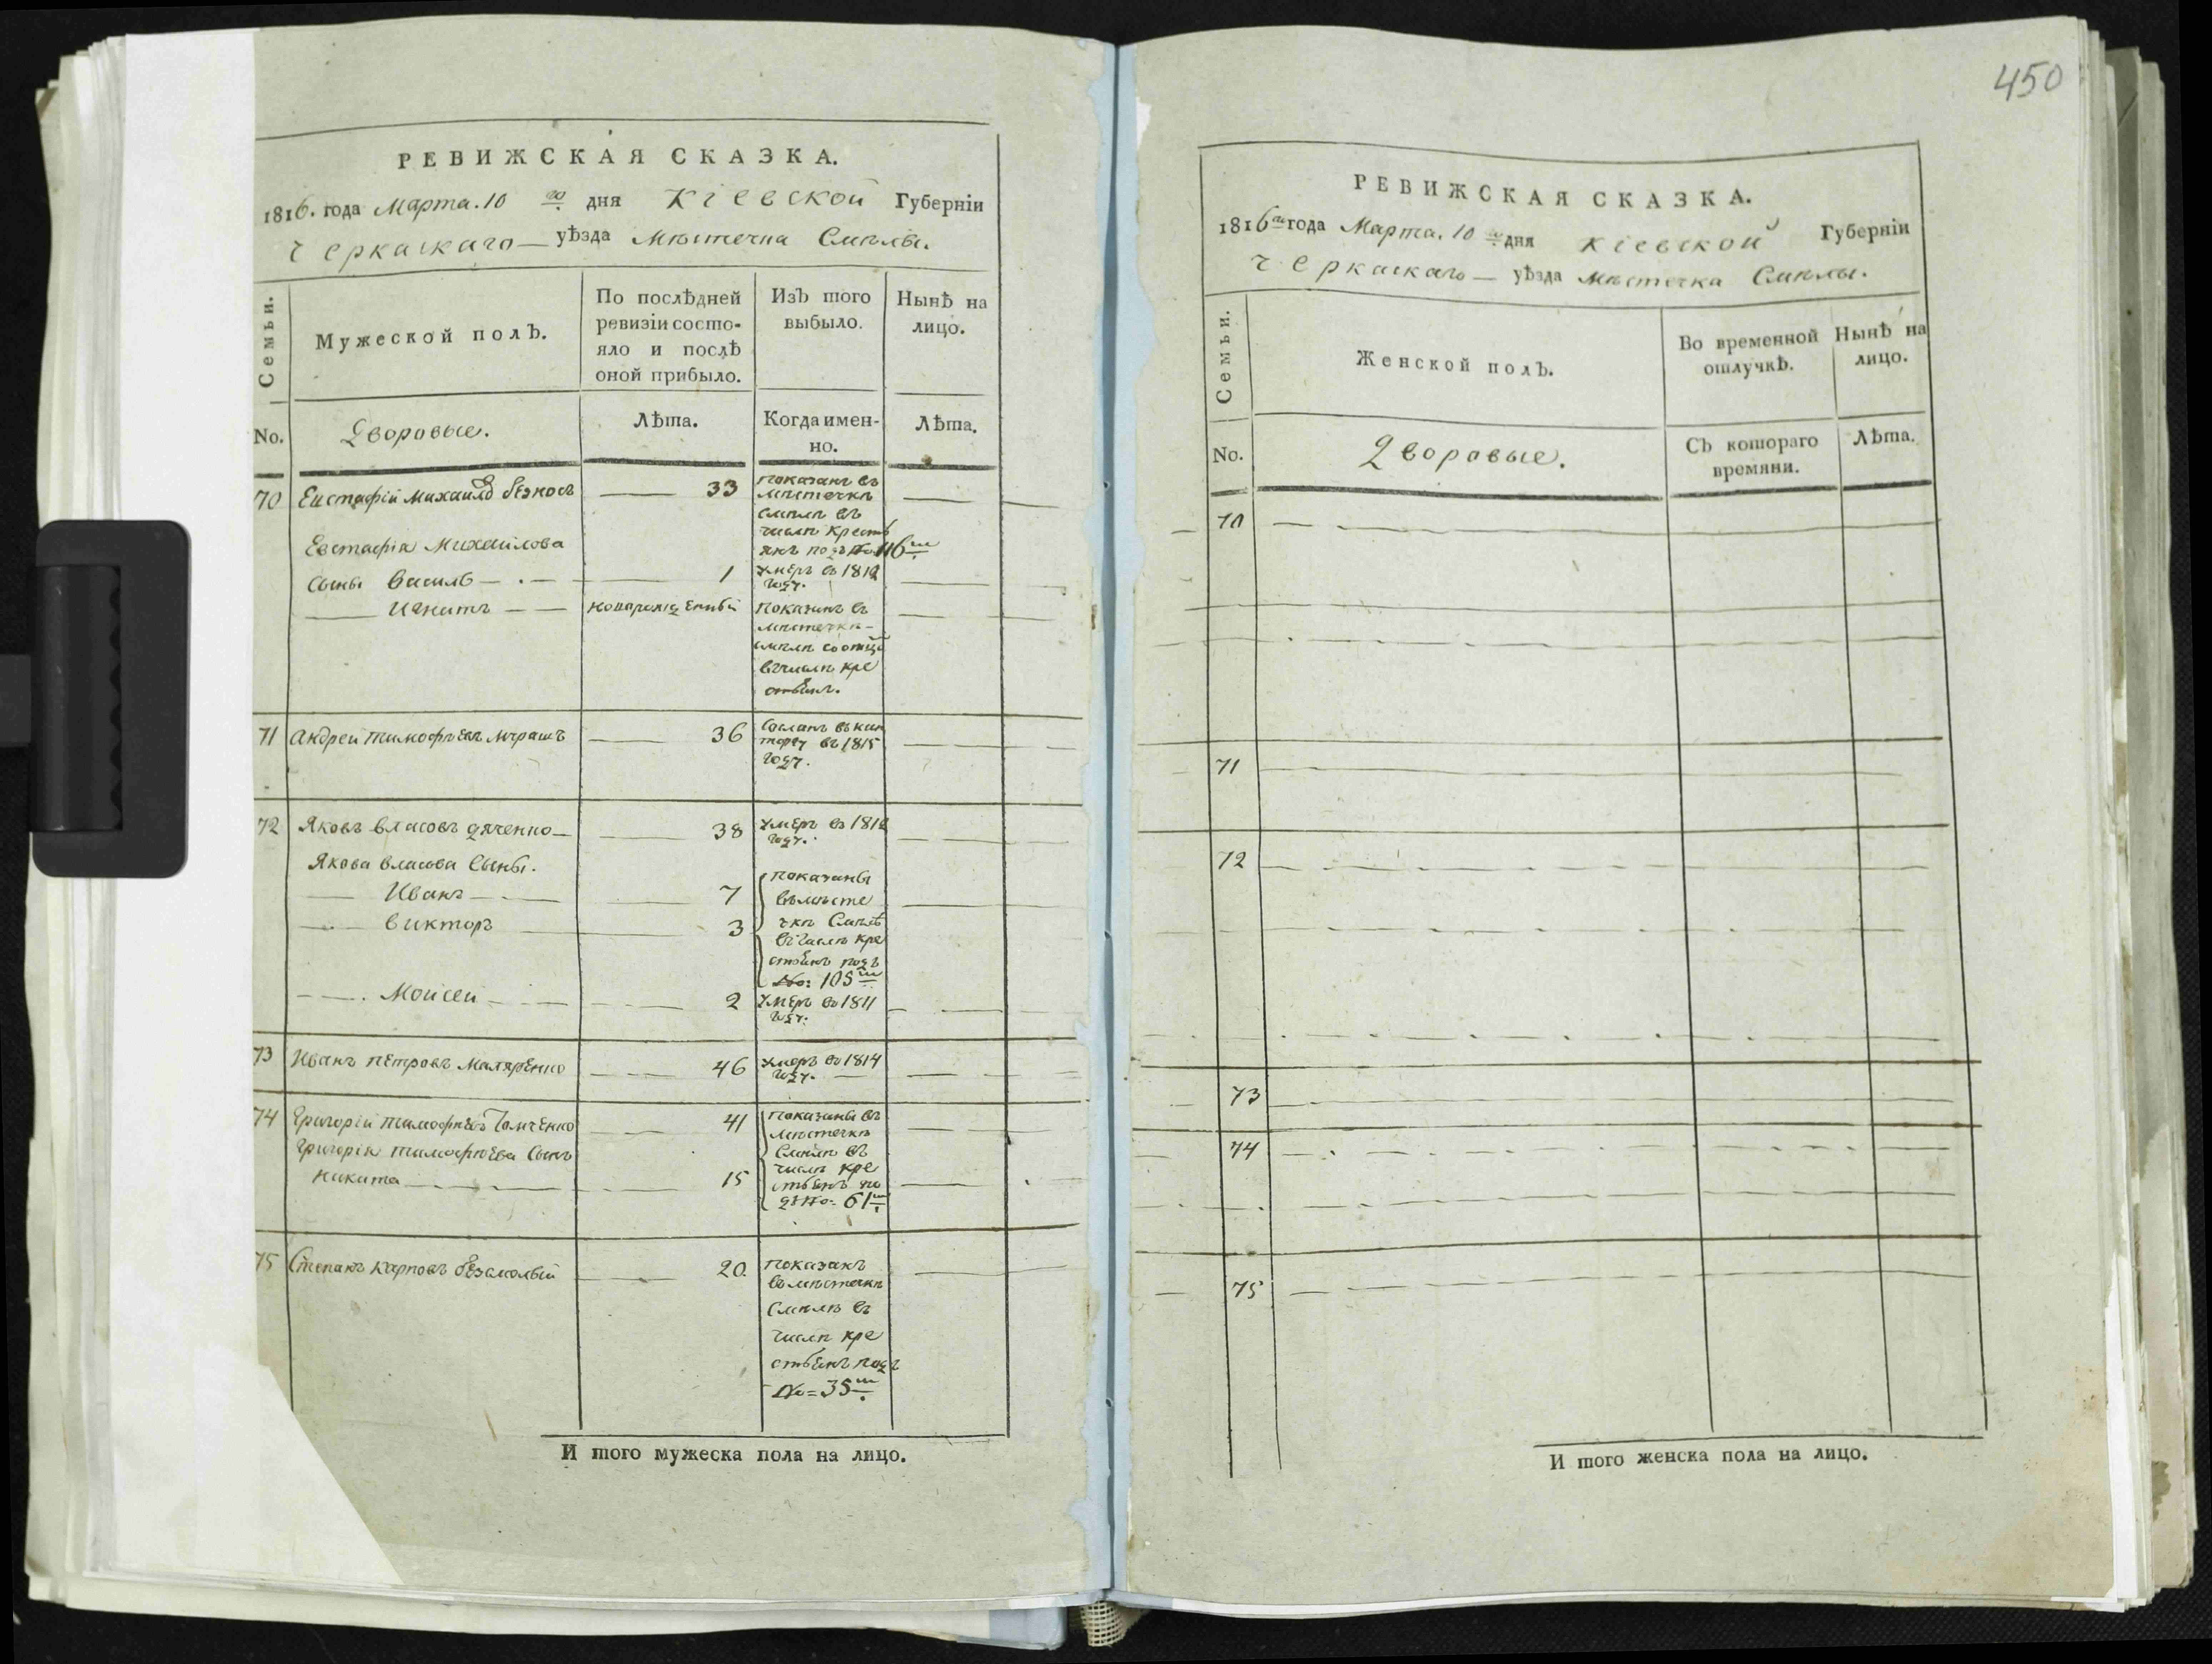 450
РЕВИЖСКАЯ СКАЗКА.
1816. года Марта. 10 го дня Кіевской Губерніи
Черкаскаго — уѣзда Мѣстечка Смѣлы.
Семьи.
Мужеской полъ.
По послѣдней ревизіи состо-
яло и послѣ
оной прибыло.
Изъ того
выбыло.
Нынѣ на
лицо.
No.
Дворовые.
Лѣта.
Когда имен-
но.
Лѣта.
70 Евстафій Михайловъ безносъ — 33 показанъ въ
мѣстечкѣ
смѣлѣ въ
числѣ кресть
янъ подъ No 116мъ
Евстафія Михайлова
сыны Василь — 1 умеръ въ 1812
году.
Игнатъ — новорожденный показанъ въ
мѣстечкѣ
смѣлѣ со отцемъ
въ числѣ кре
стьянъ.
71 Андрей тимофѣевъ — 36 въ 1815
году.
72 Яковъ власовъ дяченко — 38 умеръ въ 1812
году.
Якова власова сыны.
Иванъ — 7
викторъ 3
показаны
въ мѣсте
чкѣ Смѣлѣ
въ числѣ кре
стьянъ подъ
No: 105мъ
Моисей — 2 умеръ въ 1811
году.
73 Иванъ петровъ Маляренко — 46 умеръ въ 1814
году.
74 Григорій тимофѣевъ — 41
Григорія тимофѣева сынъ
никита — 15
показаны въ
мѣстечкѣ
Смѣлѣ въ
числѣ кре
стьянъ по
дъ No: 61мъ
75 Степанъ карповъ — 20. показанъ
въ мѣстечкѣ
Смѣлѣ въ
числѣ кре
стьянъ подъ
No = 35мъ
И того мужеска пола на лицо.
РЕВИЖСКАЯ СКАЗКА.
1816го года Марта. 10 го дня Кіевской Губерніи
Черкаскаго — уѣзда Мѣстечка Смѣлы.
Семьи.
Женской полъ.
Во временной
отлучкѣ.
Нынѣ на
лицо.
No.
Дворовые.
Съ котораго
времяни.
Лѣта.
70
71
72
73
74
75
И того женска пола на лицо.